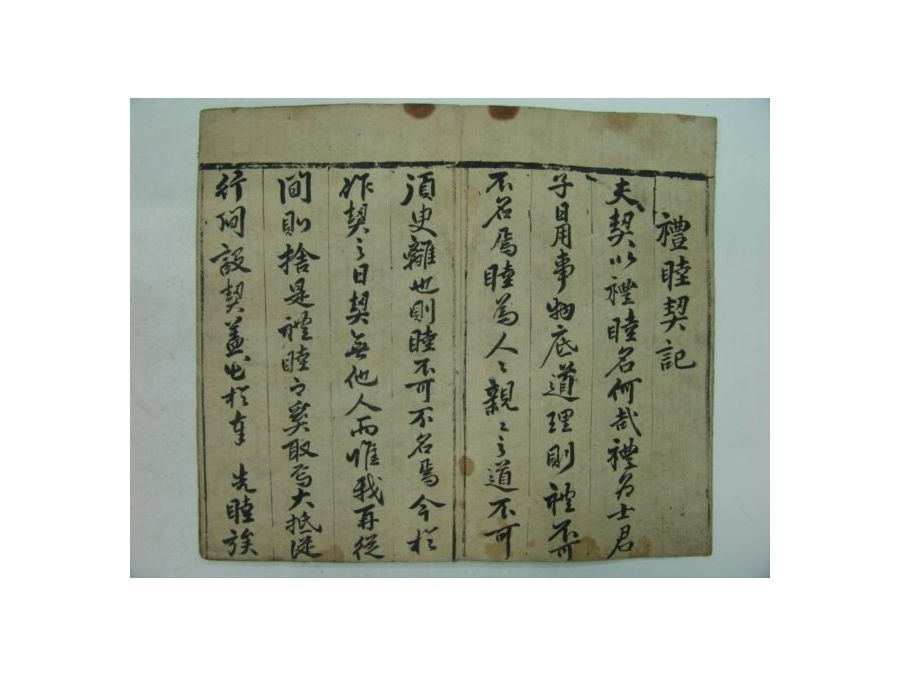 禮睦契記
夫契以禮睦名何哉禮爲士君
子日用事物底道理則禮不可
不名焉睦爲人之親之之道不可
須臾離也則睦不可不名焉今於
昨契之日契無他人而惟我再從
間則捨是禮睦而奚取焉大抵從
行間設契盖出於奉 先睦族